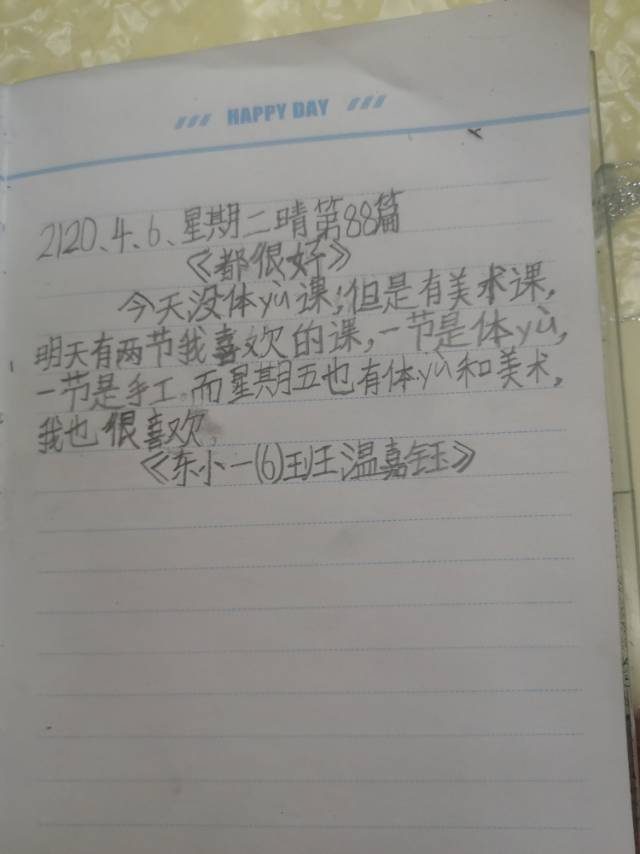 HAPPY DAY
2120、4、6、星期二晴第88篇
《都很好》
今天没体yù课,但是有美术课,
明天有两节我喜欢的课,一节是体yù,
一节是手工。而星期五也有体yù和美术,
我也很喜欢,
《东小一(6)班温嘉钰》